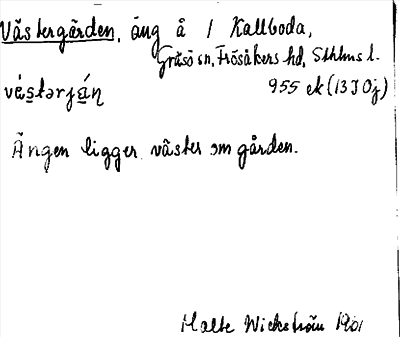 Västergården, äng å 1 Kallboda,
Gräsö sn, Frösåkers hd, Sthlms l.
955 ek (13J Oj)
Ängen ligger väster om gården.
Malte Wickström 1901